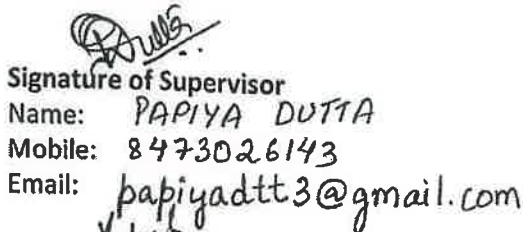 Signature of Supervisor
Name: PAPIYA DUTTA
Mobile: 8473026143
Email: papiyadtt3@gmail.com